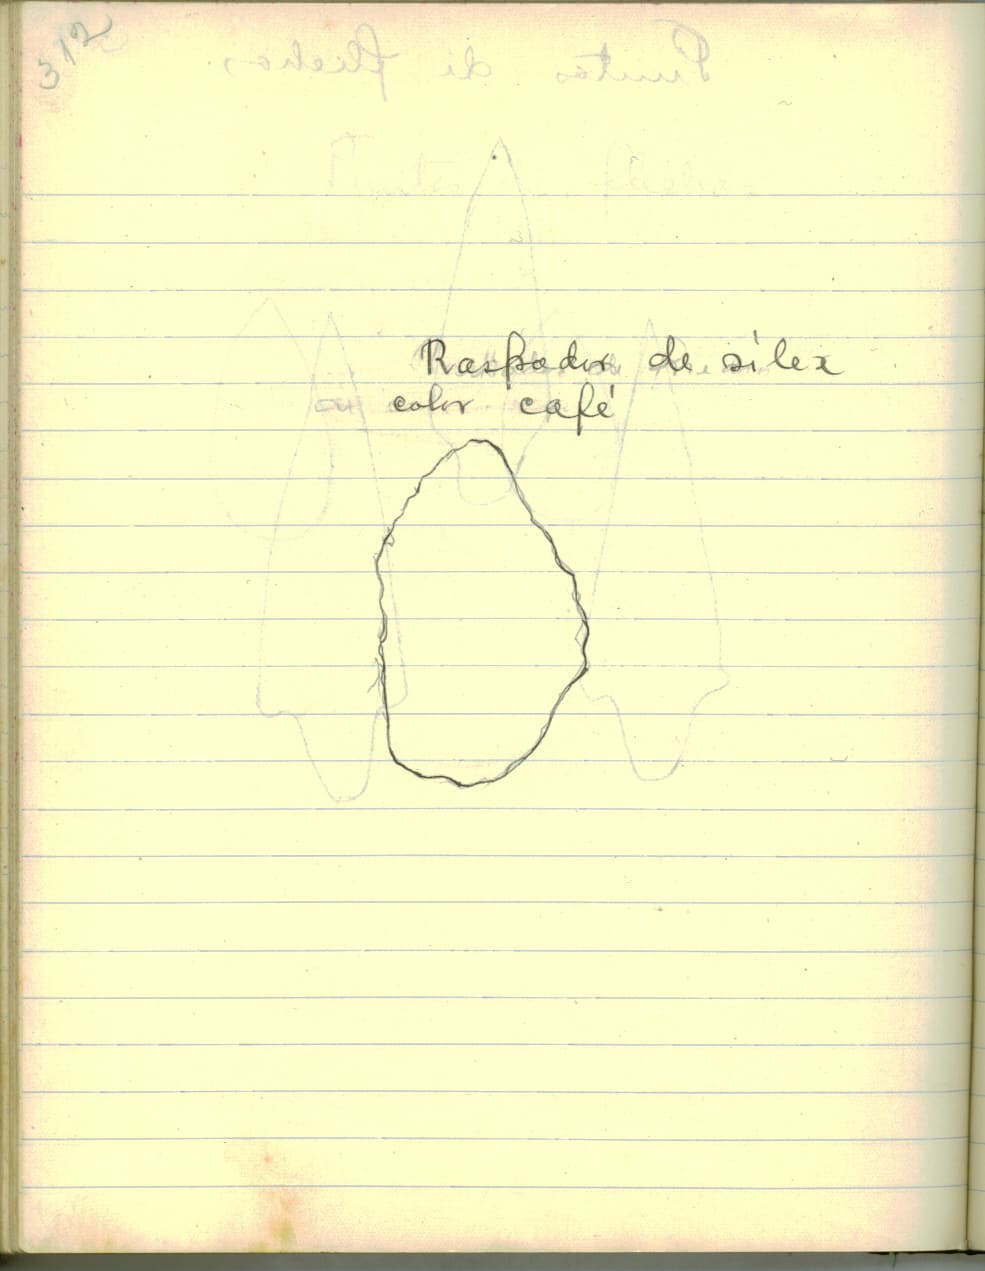 312
Raspador de silex
color café